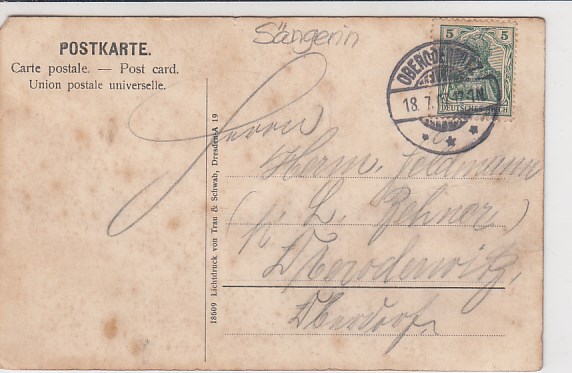 Sängerin
POSTKARTE.
Carte postale. — Post card.
Union postale universelle.
5 5
DEUTSCHES REICH
18. 7.
Herrn
Herm.
L. Zehner)
Oberoderwitz,
Oberdorf.
18609 Lichtdruck von Trau & Schwab, Dresden-A 19